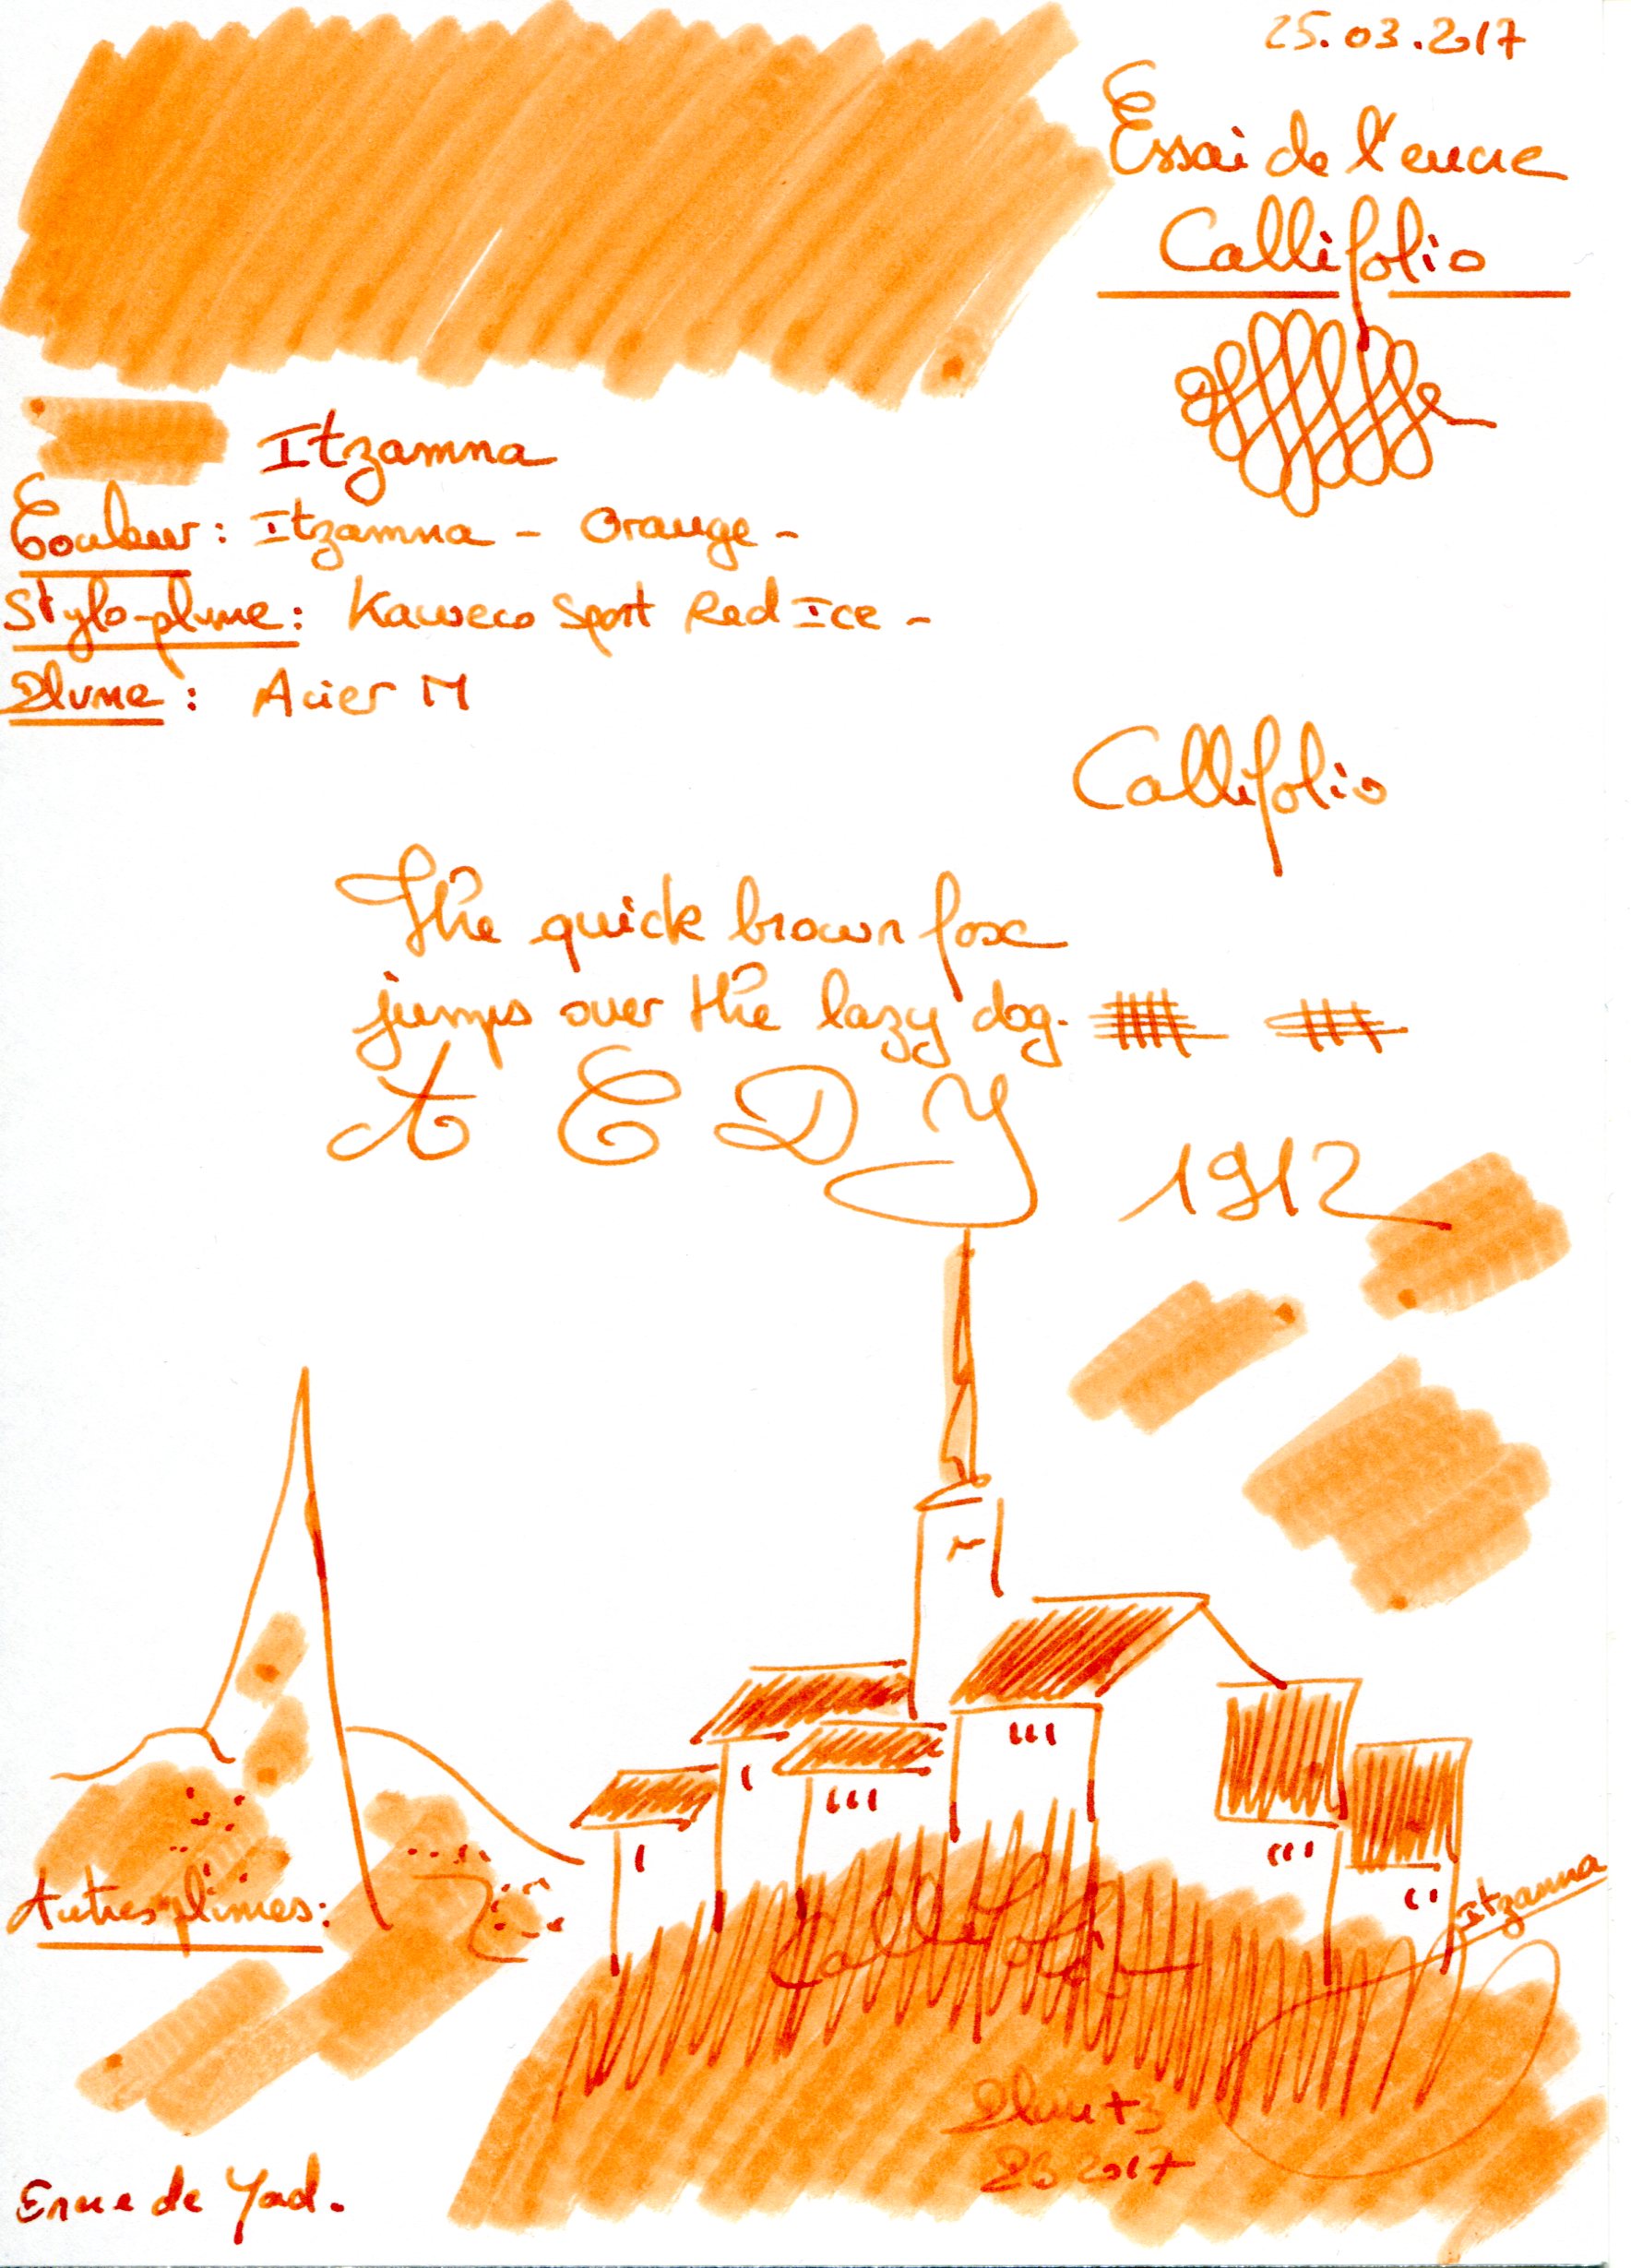 25.03.2017
Essai de l'encre
Callifolio
Itzamna
Couleur : Itzamna - Orange -
Stylo-plume : Kaweco Sport Red Ice -
Plume : Acier M
Callifolio
The quick brown fox
jumps over the lazy dog.
A E D Y
1912
Autres plumes :
Itzamna
Callifolio
2017
Encre de Yad.